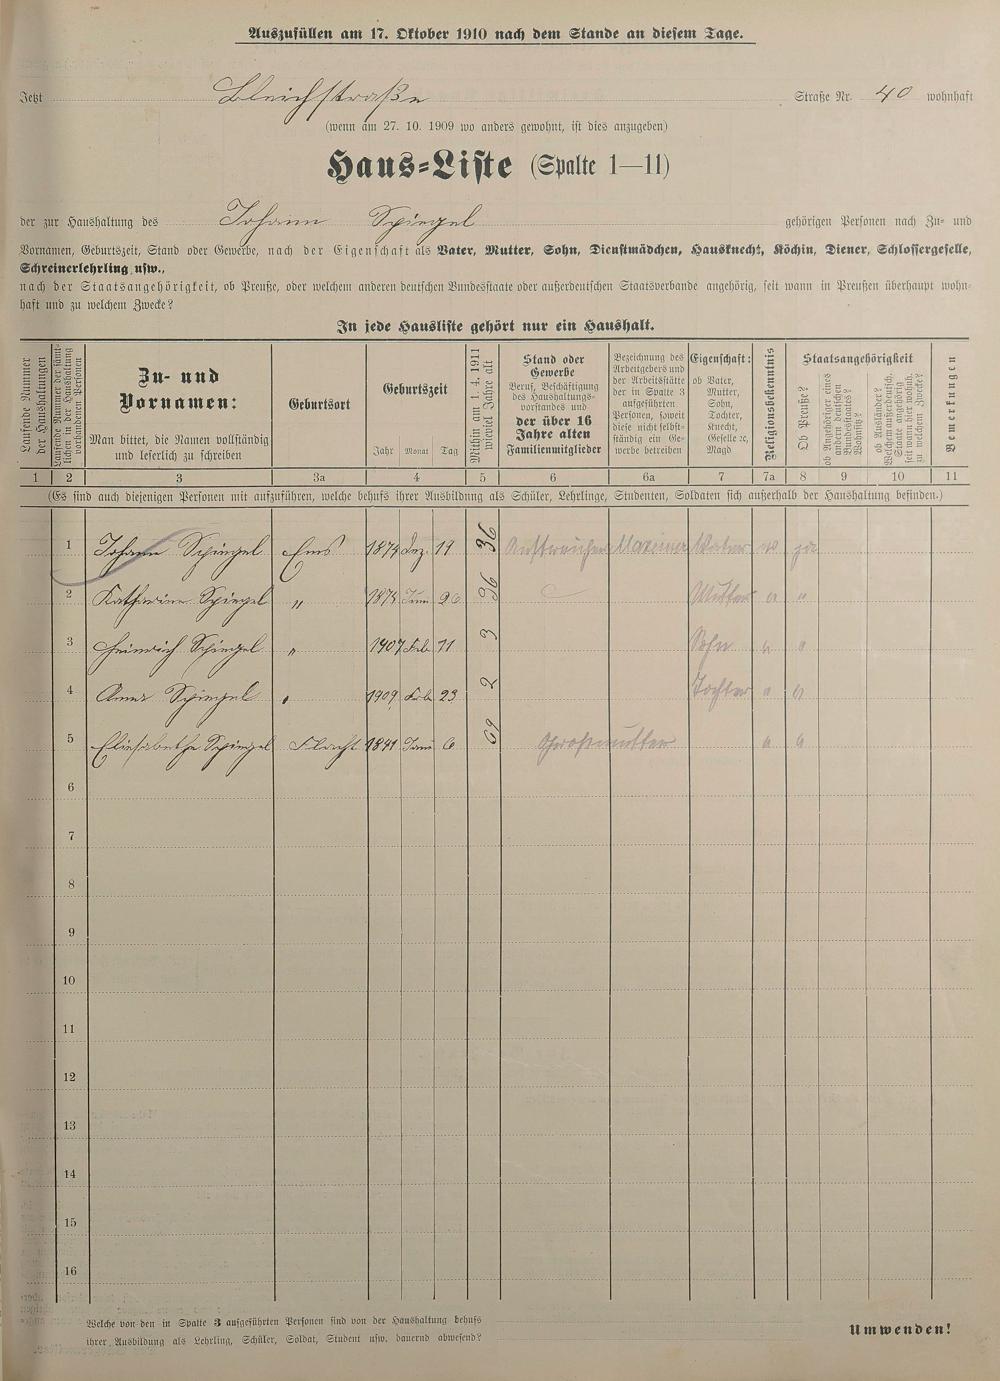 Auszufüllen am 17. Oktober 1910 nach dem Stande an diesem Tage.
Jetzt Bleichstraße Straße Nr. 40 wohnhaft
(wenn am 27. 10. 1909 wo anders gewohnt, ist dies anzugeben)
Haus-Liste (Spalte 1—11)
der zur Haushaltung des Johann Spiegel gehörigen Personen nach Zu- und
Vornamen, Geburtszeit, Stand oder Gewerbe, nach der Eigenschaft als Vater, Mutter, Sohn, Dienstmädchen, Hausknecht, Köchin, Diener, Schlossergeselle,
Schreinerlehrling usw.,
nach der Staatsangehörigkeit, ob Preuße, oder welchem anderen deutschen Bundesstaate oder außerdeutschen Staatsverbande angehörig, seit wann in Preußen überhaupt wohn-
haft und zu welchem Zwecke?
In jede Hausliste gehört nur ein Haushalt.
Laufende Nummer der Haushaltungen
Laufende Nummer der sämt-
lichen in der Haushaltung
vorhandenen Personen
Zu- und
Vornamen:
Man bittet, die Namen vollständig
und leserlich zu schreiben
Geburtsort
Geburtszeit
Jahr Monat Tag
Mithin am 1. 4. 1911
wieviel Jahre alt
Stand oder
Gewerbe
Beruf, Beschäftigung
des Haushaltungs-
vorstandes und
der über 16
Jahre alten
Familienmitglieder
Bezeichnung des
Arbeitgebers und
der Arbeitsstätte
der in Spalte 3
aufgeführten
Personen, soweit
diese nicht selbst-
ständig ein Ge-
werbe betreiben
Eigenschaft:
ob Vater,
Mutter,
Sohn,
Tochter,
Knecht,
Geselle ec,
Magd
Religionsbekenntnis
Staatsangehörigkeit
Ob Preuße?
ob Angehöriger eines
andern deutschen
Bundesstaates?
Wohnsitz?
ob Ausländer?
Welchem außerdeutsch.
Staate angehörig
seit wann hier wohnh.
zu welchem Zwecke?
Bemerkungen
1 2 3 3a 4 5 6 6a 7 7a 8 9 10 11
(Es sind auch diejenigen Personen mit aufzuführen, welche behufs ihrer Ausbildung als Schüler, Lehrlinge, Studenten, Soldaten sich außerhalb der Haushaltung befinden.)
1 Johann Spiegel Ems 1874 Dez. 19 36 Anstreicher Vater ja
2 Katharine Spiegel " 1874 Juni 26 36 Mutter "
3 Heinrich Spiegel " 1907 Feb. 11 3 Sohn "
4 Anna Spiegel " 1909 Feb. 23 2 Tochter "
5 Eliesabetha Spiegel Flacht 1841 Juni 6 69 Großmutter "
6
7
8
9
10
11
12
13
14
15
16
Welche von den in Spalte 3 aufgeführten Personen sind von der Haushaltung behufs
ihrer Ausbildung als Lehrling, Schüler, Soldat, Student usw. dauernd abwesend?
Umwenden!